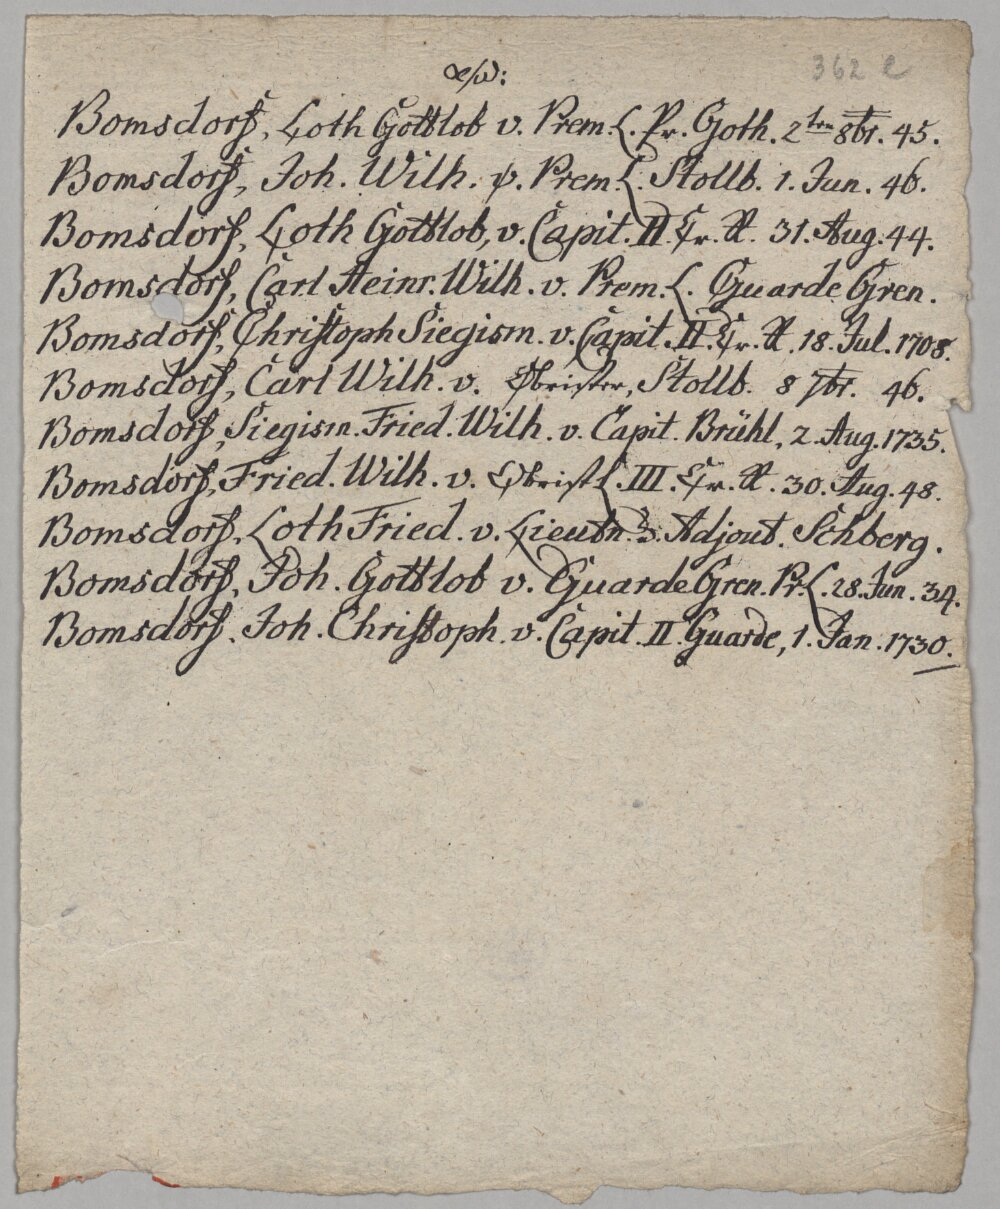 362 e
Bomsdorf, Loth Gottlob v. Prem. L. Pr. Goth. 2ten 8br. 45.
Bomsdorf, Joh. Wilh. v. Prem. L. Stollb. 1. Jun. 46.
Bomsdorf, Loth Gottlob, v. Capit. II. Cr. R. 31. Aug. 44.
Bomsdorf, Carl Heinr. Wilh. v. Prem. L. Guarde Gren.
Bomsdorf, Christoph Siegism. v. Capit. II. Cr. R. 18. Jul. 1708.
Bomsdorf, Carl Wilh. v. Obrister, Stollb. 8 7br. 46.
Bomsdorf, Siegism. Fried. Wilh. v. Capit. Brühl, 2. Aug. 1735.
Bomsdorf, Fried. Wilh. v. Obrist L. III. Cr. R. 30. Aug. 48.
Bomsdorf, Loth Fried. v. Lieutn. Adjout. Schberg.
Bomsdorf, Joh. Gottlob v. Guarde Gren. Pr. L. 28. Jun. 34.
Bomsdorf, Joh. Christoph v. Capit. II Guarde, 1. Jan. 1730.